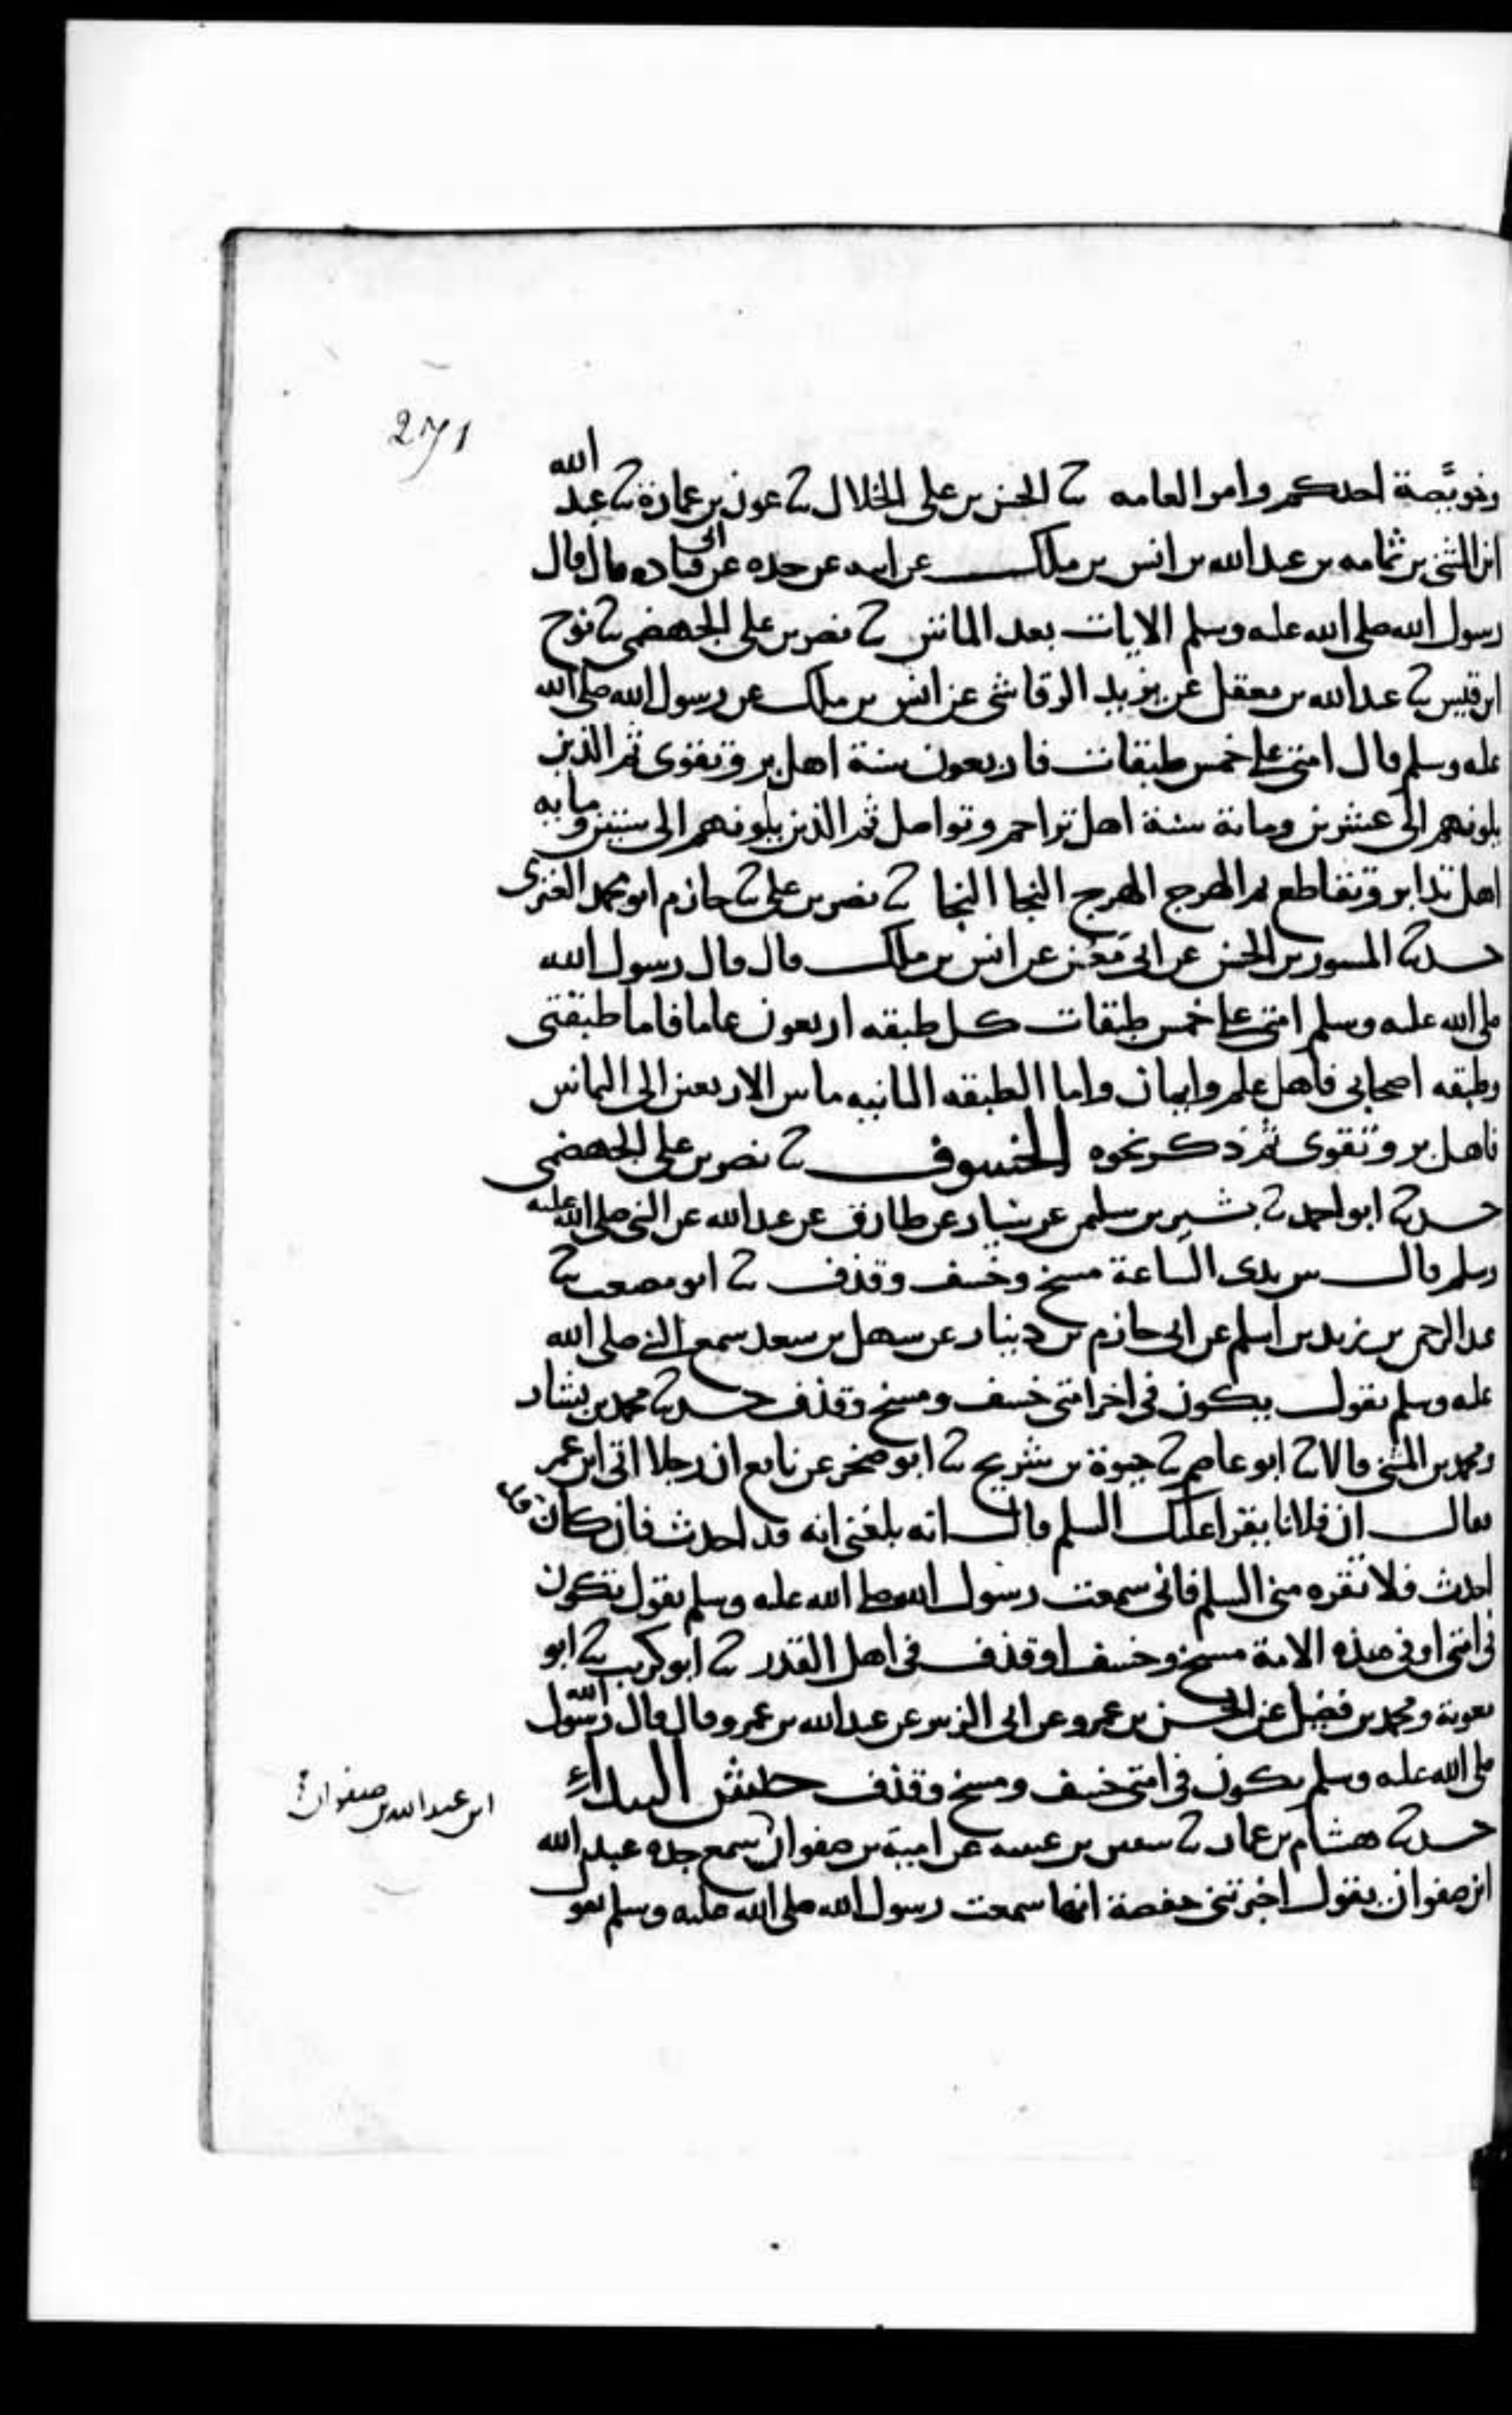 271
وخويصة احدكم وامر العامه ثنا الحسن بن علي الخلال ثنا عون بن عمارة ثنا عبد الله
ابن المثنى بن ثمامه بن عبد الله بن انس بن ملك عن ابيه عن جده عن ابي قتاده قال قال
رسول الله صلى الله عليه وسلم الايات بعد المائتين ثنا نصر بن علي الجهضمي ثنا نوح
ابن قيس ثنا عبد الله بن معقل عن يزيد الرقاشي عن انس بن ملك عن رسول الله صلى الله
عليه وسلم قال امتي على خمس طبقات فاربعون سنة اهل بر وتقوى ثم الذين
يلونهم الى عشرين ومائة سنة اهل تراحم وتواصل ثم الذين يلونهم الى ستين ومايه
اهل تدابر وتقاطع ثم الهرج الهرج النجا النجا ثنا نصر بن علي ثنا حازم ابو محمد العنزي
حدثنا المسور بن الحسن عن ابي معن عن انس بن ملك قال قال رسول الله
صلى الله عليه وسلم امتي على خمس طبقات كل طبقه اربعون عاما فاما طبقتي
وطبقه اصحابي فاهل علم وايمان واما الطبقه الثانيه ما بين الاربعين الى الثمانين
فاهل بر وتقوى ثم ذكر نحوه الخسوف ثنا نصر بن علي الجهضمي
حدثنا ابو احمد ثنا بشير بن سلمن عن سيار عن طارق عن عبد الله عن النبي صلى الله عليه
وسلم قال بين يدي الساعة مسخ وخسف وقذف ثنا ابو مصعب ثنا
عبد الرحمن بن زيد بن اسلم عن ابي حازم بن دينار عن سهل بن سعد سمع النبي صلى الله
عليه وسلم يقول يكون في اخر امتي خسف ومسخ وقذف حدثنا محمد بن بشار
ومحمد بن المثنى قالا ثنا ابو عاصم ثنا حيوة بن شريح ثنا ابو صخر عن نافع ان رجلا اتى ابن عمر
فقال ان فلانا يقرا عليك السلم قال انه بلغني انه قد احدث فان كان قد
احدث فلا تقره مني السلم فاني سمعت رسول الله صلى الله عليه وسلم يقول يكون
في امتي او في هذه الامة مسخ وخسف او قذف في اهل القدر ثنا ابو كريب ثنا ابو
معوية ومحمد بن فضيل عن الحسن بن عمرو عن ابي الزبير عن عبد الله بن عمرو قال قال رسول الله
صلى الله عليه وسلم يكون في امتي خسف ومسخ وقذف جيش البيداء
حدثنا هشام بن عمار ثنا سفين بن عيينه عن امية بن صفوان سمع جده عبد الله
ابن عبد الله بن صفوان
ابن صفوان يقول اخبرتني حفصة انها سمعت رسول الله صلى الله عليه وسلم يقول